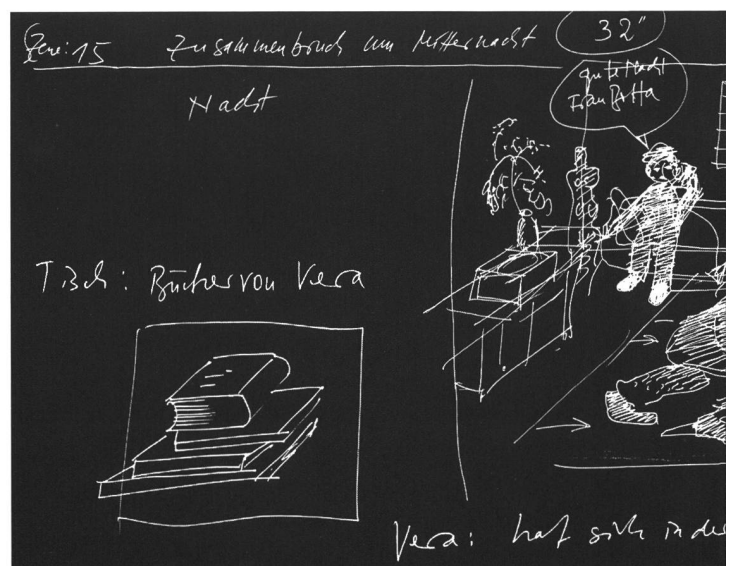 Szene: 15 Zusammenbruch um Mitternacht 32"
Nacht
gute Nacht
Frau Botta
Tisch: Bücher von Vera
Vera: hat sich in de